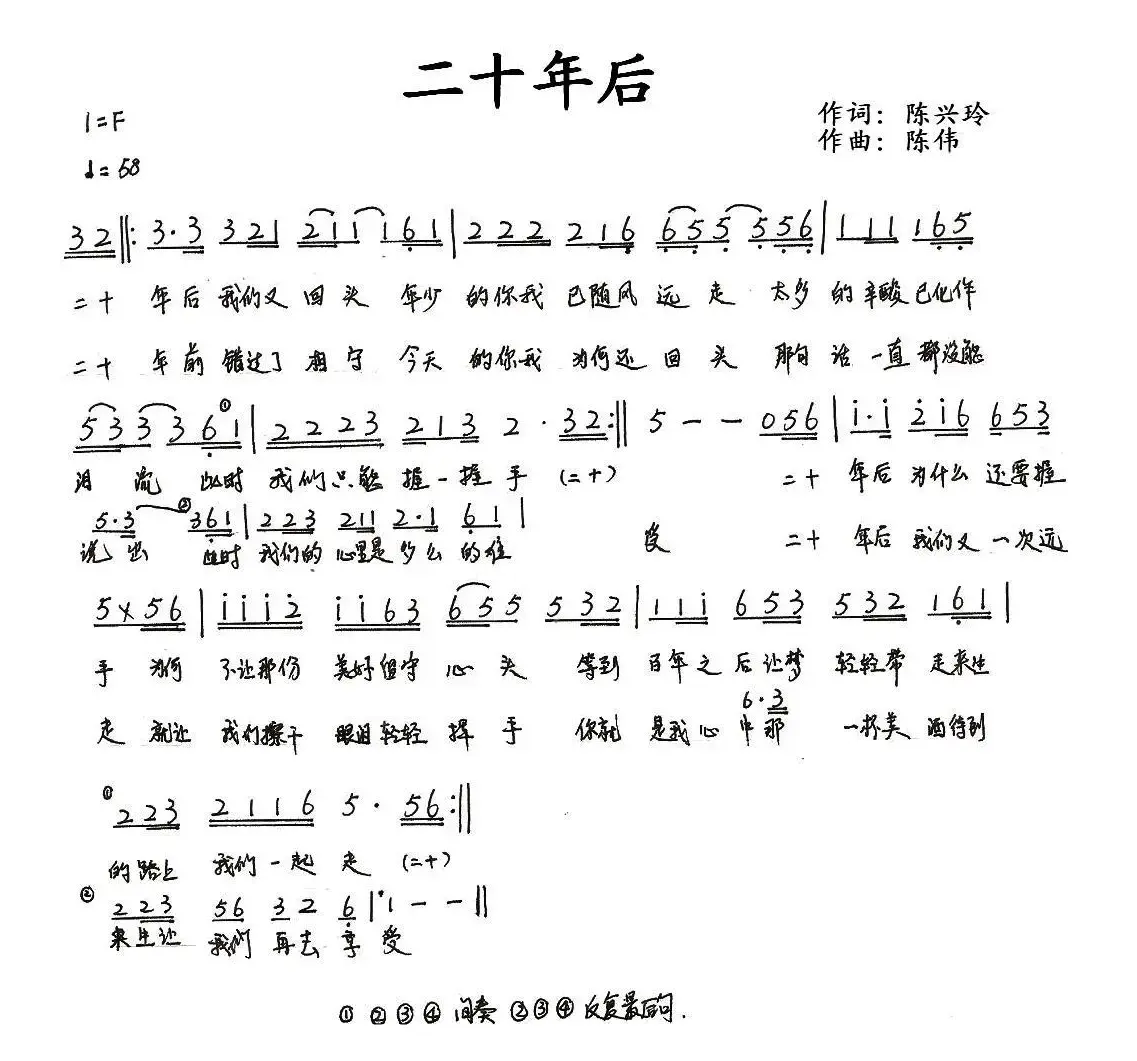 二十年后
1=F
作词：陈兴玲
♩=58
作曲：陈伟
32 ‖: 3·3 321 2111 61 | 2222 216 655 556 | 111 165
二十 年后 我们又 回头 年少 的你我 已随风 远走 太多 的辛酸已化作
二十 年前 错过了 相守 今天 的你我 为何还 回头 那句 话一直都没能
533 361 ① | 2223 213 2· 32 :‖ 5 - - 056 | i·i 2i6 653
泪流 此时 我们只能 握一握 手 (二十) 二十 年后 为什么 还要握
5·3 ② 361 | 223 211 2·1 61 |
说出 此时 我们的 心里是 多么 的难 受 二十 年后 我们又 一次远
5x56 | iii2 ii63 655 532 | 11i 653 532 161 |
手 为何 不让那份 美好留守 心头 等到 百年之后让梦 轻轻带 走来生
6·3
走 就让 我们擦干 眼泪轻轻 挥手 你就 是我心中那 一杯美 酒待到
① 223 2116 5· 56 :‖
的路上 我们一起 走 (二十)
② 223 56 32 6 | 1 - - ‖
来生让 我们 再去 享受
① ② ③ ④ 间奏 ② ③ ④ 反复最后句.